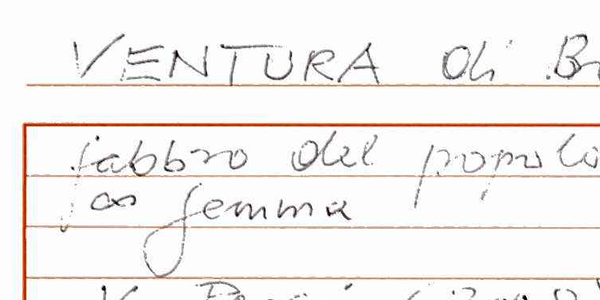 VENTURA di B
fabbro del popolo
Gemma
V.